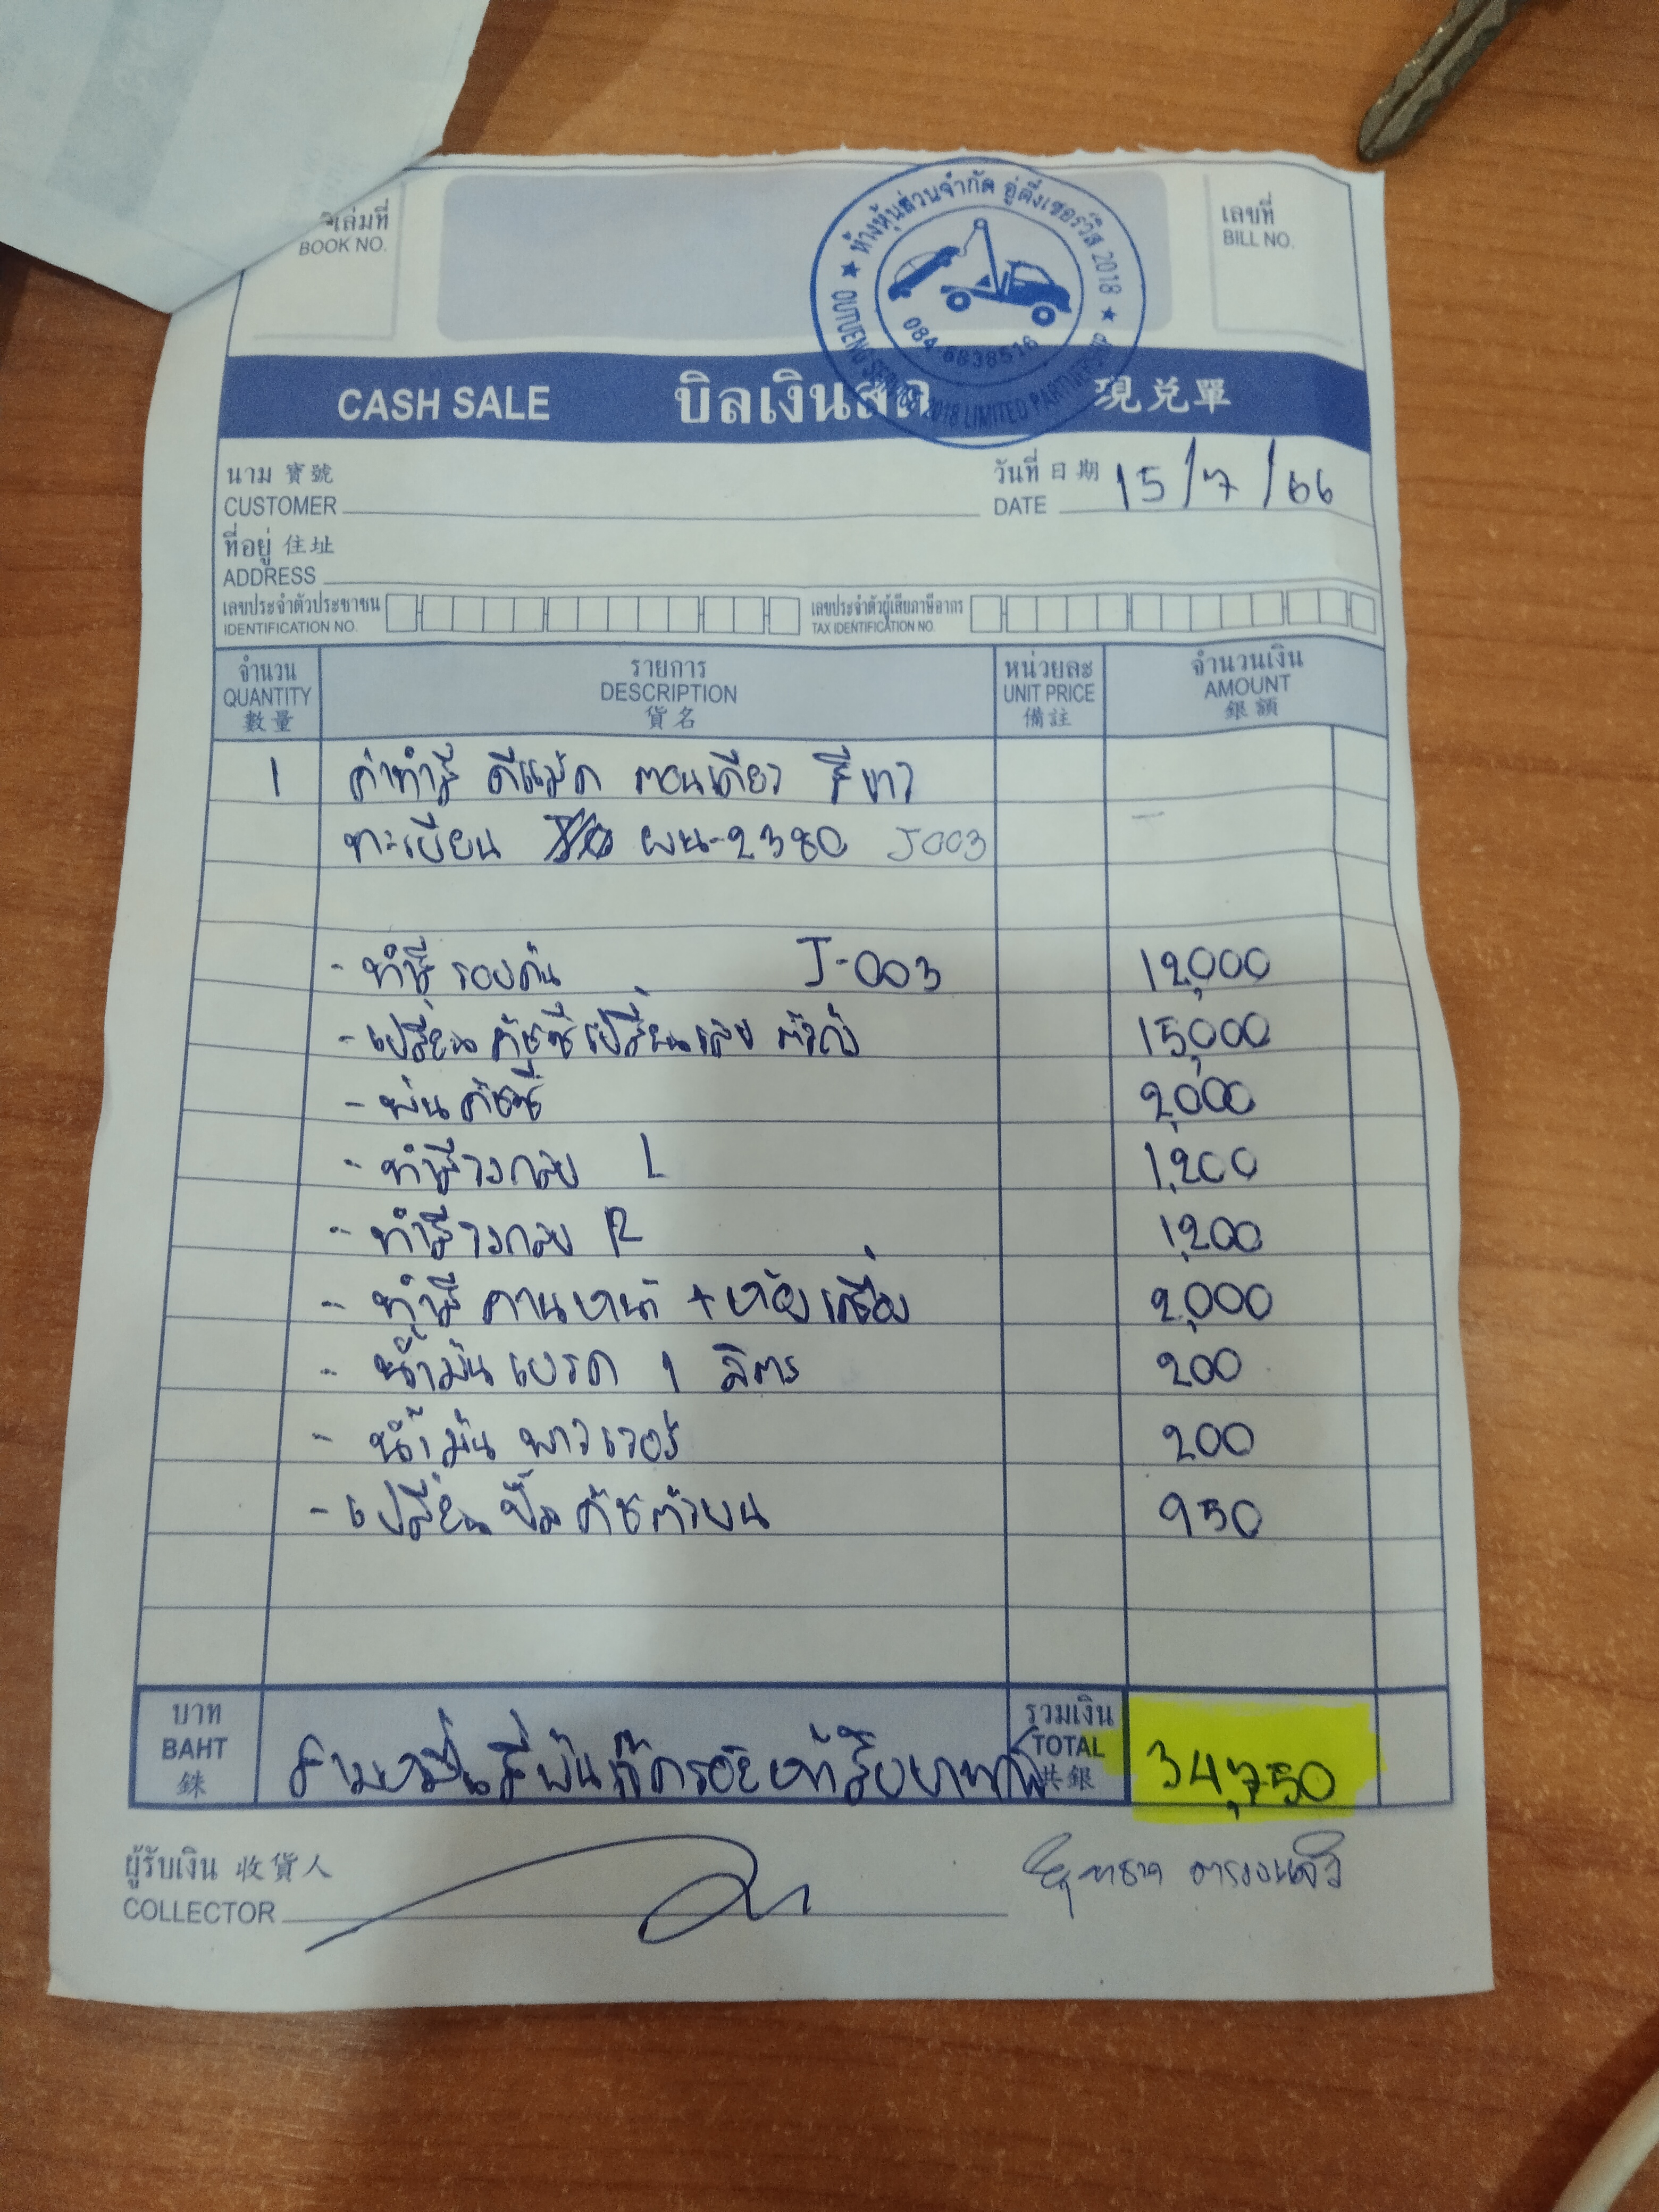 เล่มที่
BOOK NO.
★ ห้างหุ้นส่วนจำกัด อู่ตึ๋งเซอร์วิส 2018 ★
OUTUENG SERVICE 2018 LIMITED PARTNERSHIP
084-6838516
เลขที่
BILL NO.
CASH SALE บิลเงินสด 現兌單
นาม 寶號
CUSTOMER
วันที่ 日期 15/7/66
DATE
ที่อยู่ 住址
ADDRESS
เลขประจำตัวประชาชน
IDENTIFICATION NO.
เลขประจำตัวผู้เสียภาษีอากร
TAX IDENTIFICATION NO.
จำนวน รายการ หน่วยละ จำนวนเงิน
QUANTITY DESCRIPTION UNIT PRICE AMOUNT
數量 貨名 備註 銀額
1 ค่าทำสี ดีแม็ค ตอนเดียว สีขาว
ทะเบียน ผน-2380 J003
- ทำสี รอบคัน J-003 12,000
- เปลี่ยน คัชซีเปลี่ยนเลข 15,000
- พ่นคัชซี 2,000
- ทำสีวงกลบ L 1,200
- ทำสีวงกลบ R 1,200
- ทำสี คานหน้า + ห้องเครื่อง 2,000
- น้ำมันเบรค 1 ลิตร 200
- น้ำมัน พาวเวอร์ 200
- เปลี่ยน ปั๊ม คัชตัวบน 950
บาท
BAHT
銖
สามหมื่นสี่พันเจ็ดร้อยห้าสิบบาท
รวมเงิน
TOTAL
共銀
34,750
ผู้รับเงิน 收貨人
COLLECTOR